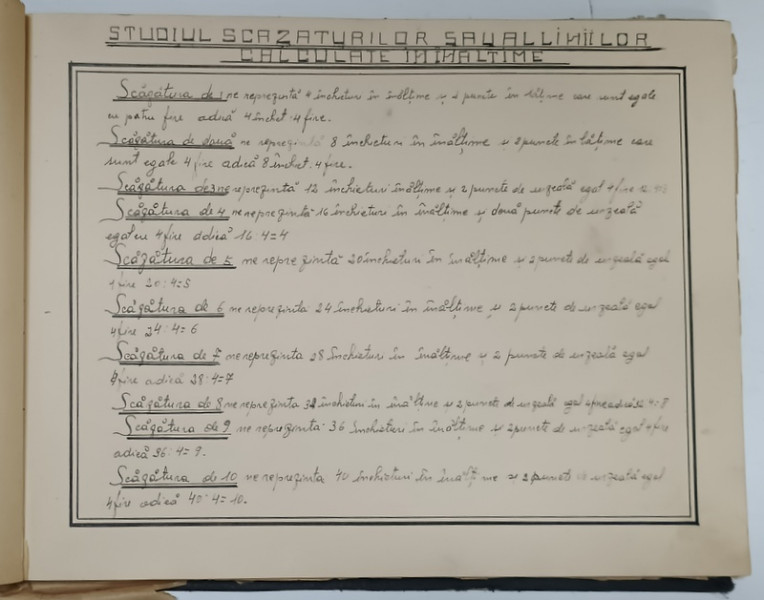 STUDIUL SCAZATURILOR SAU ALLINIILOR
CALCULATE IN INALTIME
Scăzătura de 1 ne reprezintă 4 încheturi în înălțime și 2 puncte în lățime care sunt egale
cu patru fire adică 4 închet:4 fire.
Scăzătura de două ne reprezintă 8 încheturi în înălțime și 2 puncte în lățime care
sunt egale 4 fire adică 8 închet:4 fire.
Scăzătura de 3 ne reprezintă 12 încheturi înălțime și 2 puncte de urzeală egal 4 fire
Scăzătura de 4 ne reprezintă 16 încheturi în înălțime și două puncte de urzeală
egal cu 4 fire adică 16:4=4
Scăzătura de 5 ne reprezintă 20 încheturi în înălțime și 2 puncte de urzeală egal
4 fire 20:4=5
Scăzătura de 6 ne reprezinta 24 încheturi în înălțime și 2 puncte de urzeală egal
4 fire 24:4=6
Scăzătura de 7 ne reprezinta 28 încheturi în înălțime și 2 puncte de urzeală egal
4 fire adică 28:4=7
Scăzătura de 8 ne reprezinta 32 încheturi în înălțime și 2 puncte de urzeală egal 4 fire adică 32:4=8
Scăzătura de 9 ne reprezinta 36 încheturi în înălțime și 2 puncte de urzeală egal 4 fire
adică 36:4=9.
Scăzătura de 10 ne reprezinta 40 încheturi în înălțime și 2 puncte de urzeală egal
4 fire adică 40:4=10.